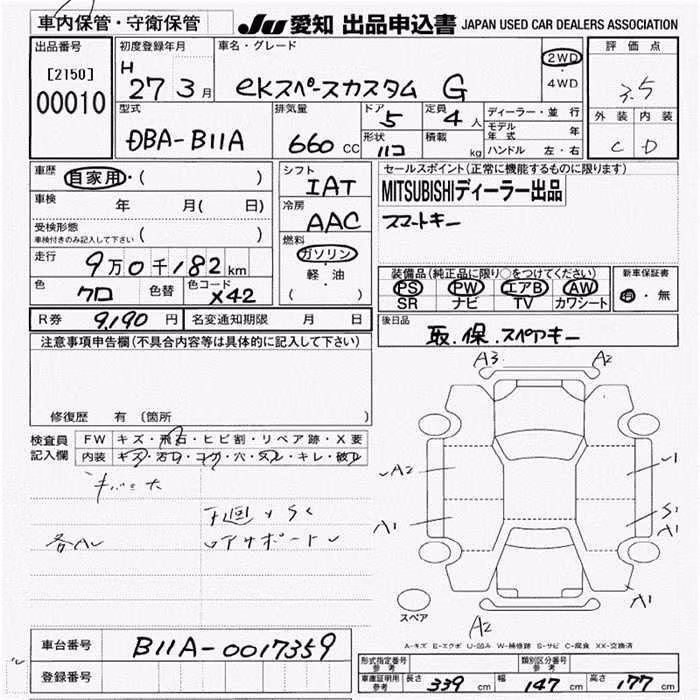 車内保管・守衛保管 JU 愛知 出品申込書 JAPAN USED CAR DEALERS ASSOCIATION
出品番号 初度登録年月 車名・グレード 評価点
[2150] H 27 3月 eKスペースカスタム G 2WD・4WD 3.5
00010
型式 排気量 ドア 5 定員 4人 ディーラー・並行 外装 内装
DBA-B11A 660CC 形状 ハコ 積載 kg モデル年式 年 C D
ハンドル 左・右
車歴 自家用・( ) シフト IAT セールスポイント(正常に機能するものに限ります)
車検 年 月( 日) 冷房 AAC MITSUBISHIディーラー出品
受検形態 車検付きのみ記入して下さい ( ) スマートキー
走行 9万0千182km 燃料 ガソリン・軽・油 ( )
装備品(純正品に限り○をつけてください) 新車保証書
色 クロ 色替 色コード X42 PS PW エアB AW 有・無
SR ナビ TV カワシート
R券 9,190円 名変通知期限 月 日 後日品
取.保.スペアキー
注意事項申告欄(不具合内容等は具体的に記入して下さい)
A3 A2
修復歴 有 (箇所 )
検査員記入欄 FW キズ・飛石・ヒビ割・リペア跡・X要
内装 キズ・汚れ・コゲ・穴・スレ・キレ・破レ
A2 U1
A1 S1
A1
A1
スペア
A2
A-キズ E-エクボ U-凹み W-補修跡 S-サビ C-腐食 XX-交換済
車台番号 B11A-0017359
登録番号
形式指定番号 参考 類別区分番号 参考
車庫証明用 参考 長さ 339cm 幅 147cm 高さ 177cm